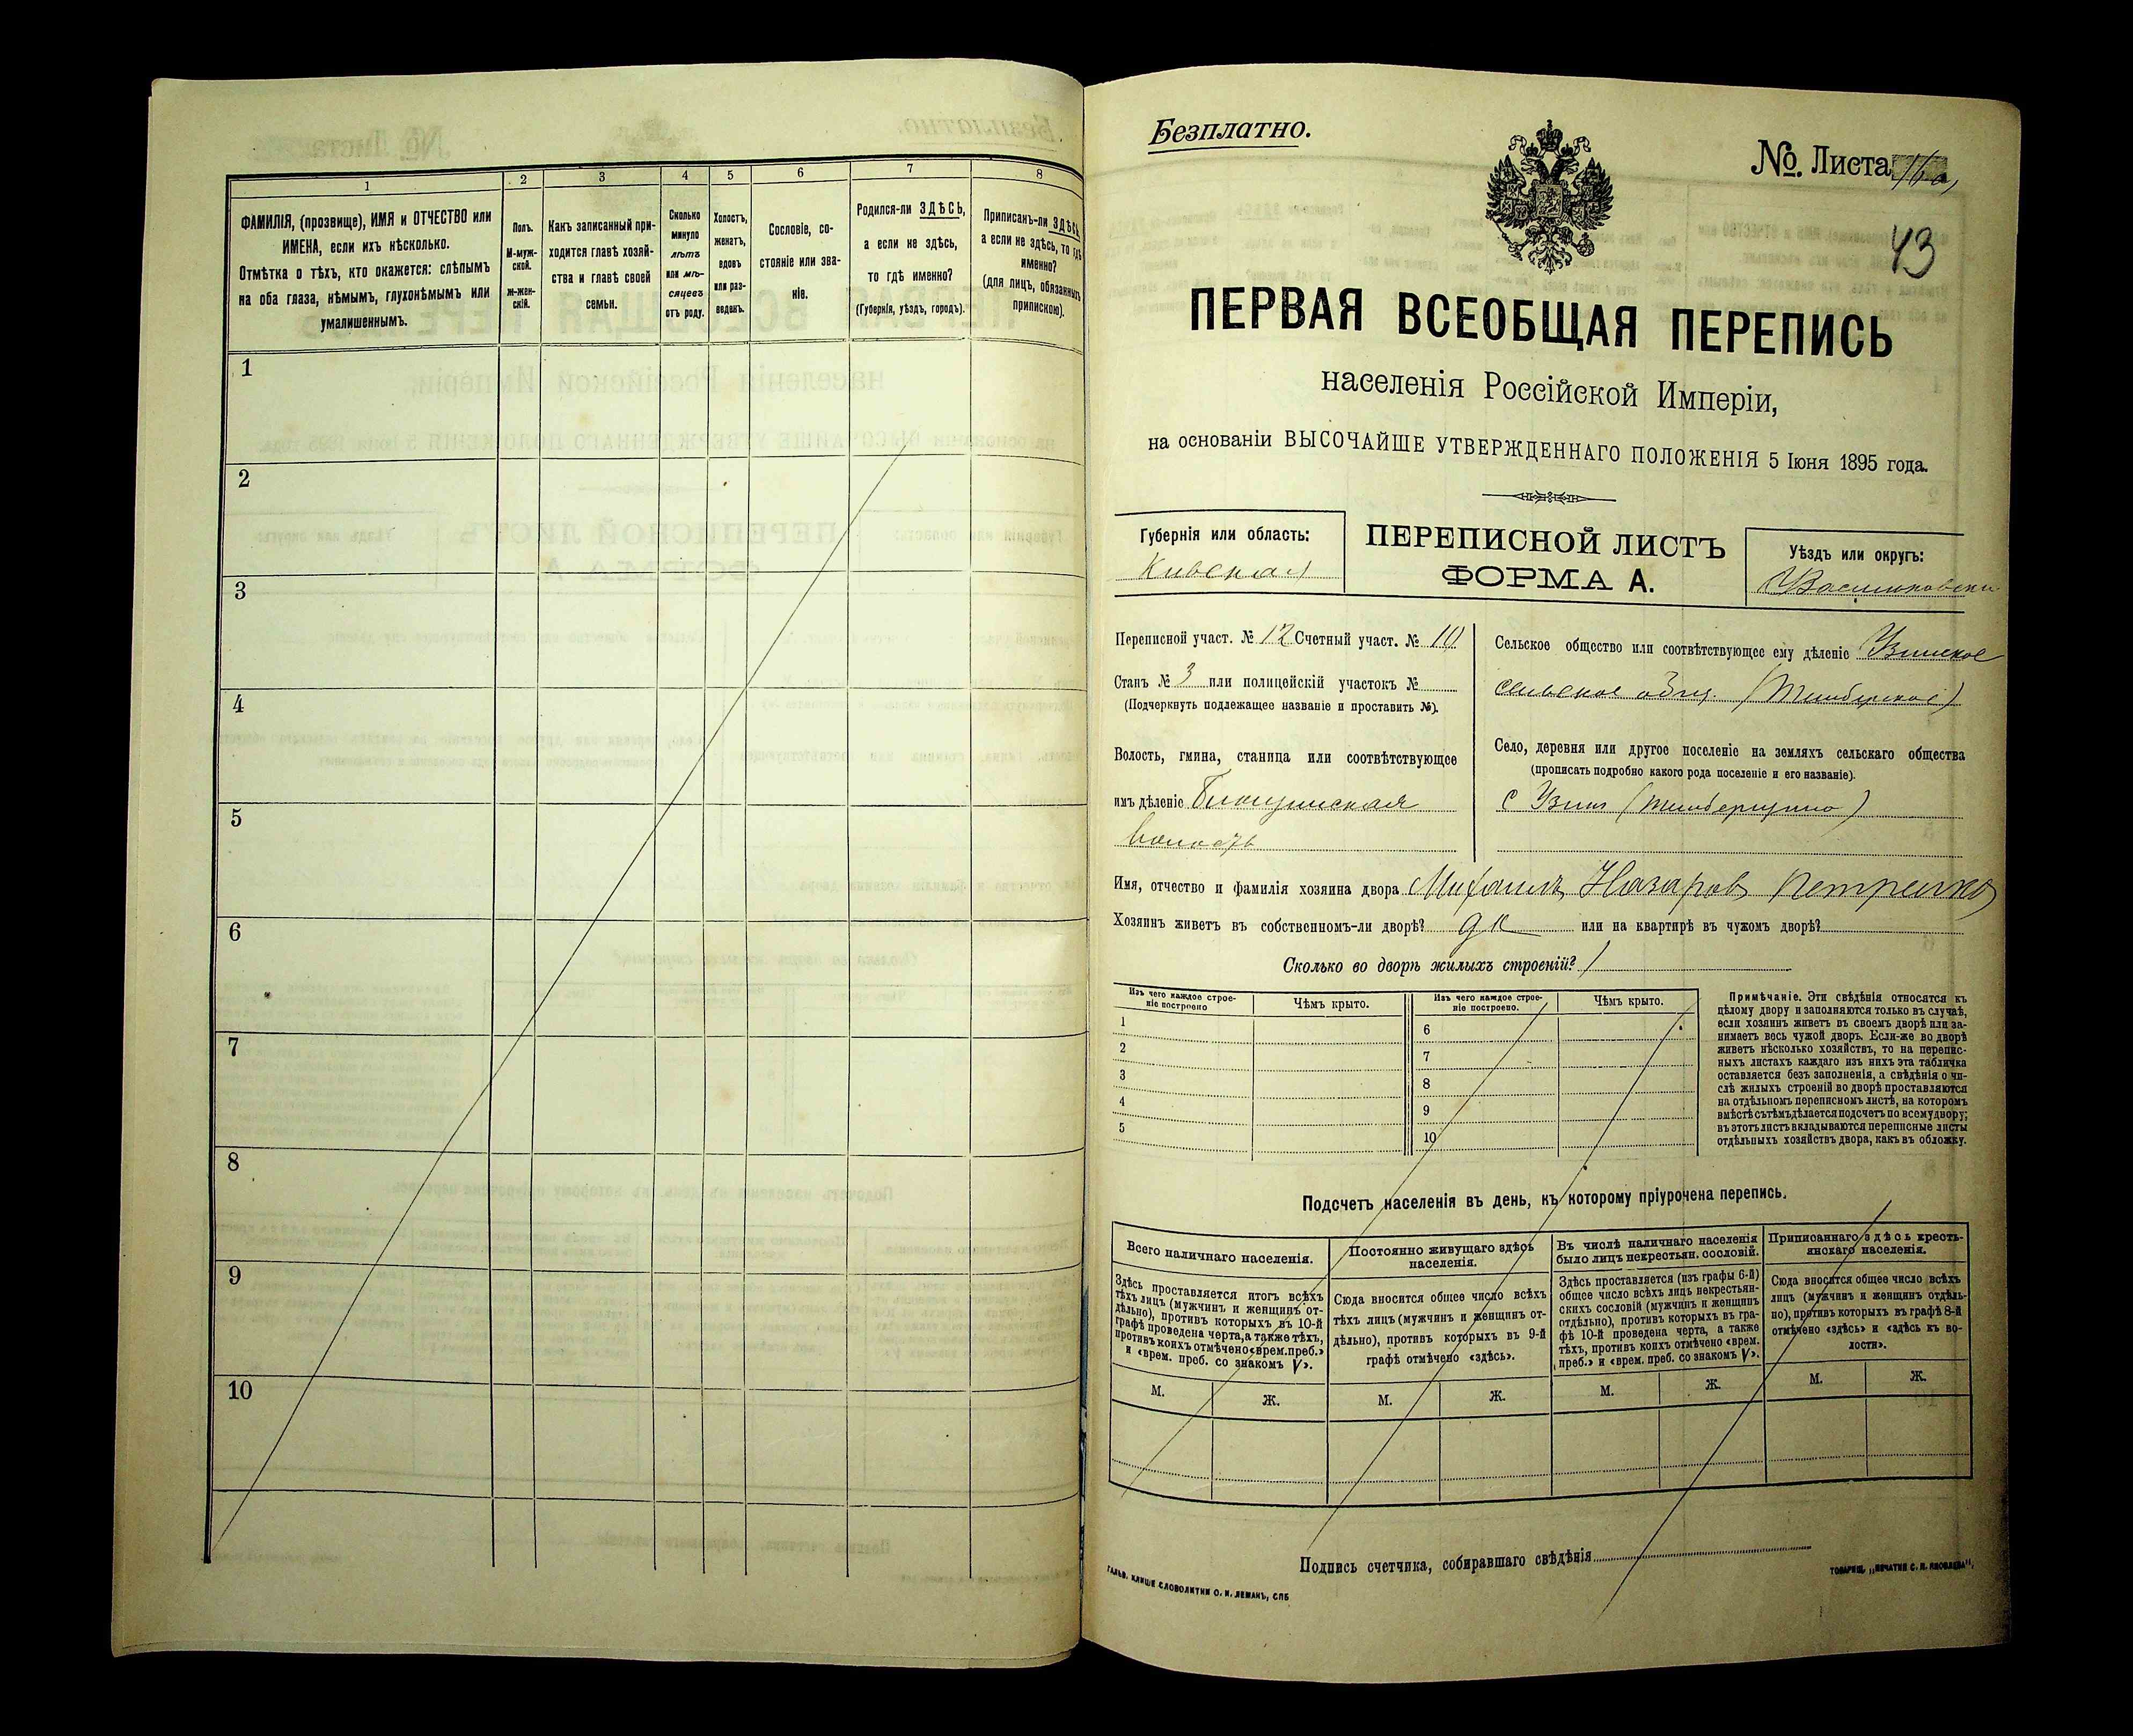 1
2
3
4
5
6
7
8
ФАМИЛІЯ, (прозвище), ИМЯ и ОТЧЕСТВО или
ИМЕНА, если ихъ нѣсколько.
Отмѣтка о тѣхъ, кто окажется: слѣпымъ
на оба глаза, нѣмымъ, глухонѣмымъ или
умалишеннымъ.
Полъ.
М-муж-
ской.
Ж-жен-
скій.
Какъ записанный при-
ходится главѣ хозяй-
ства и главѣ своей
семьи.
Сколько
минуло
лѣтъ
или мѣ-
сяцевъ
отъ роду.
Холостъ,
женатъ,
вдовъ
или раз-
веденъ.
Сословіе, со-
стояніе или зва-
ніе.
Родился-ли ЗДѢСЬ,
а если не здѣсь,
то гдѣ именно?
(Губернія, уѣздъ, городъ).
Приписанъ-ли ЗДѢСЬ,
а если не здѣсь, то гдѣ
именно?
(для лицъ, обязанныхъ
припискою).
1
2
3
4
5
6
7
8
9
10
Безплатно.
№. Листа
43
ПЕРВАЯ ВСЕОБЩАЯ ПЕРЕПИСЬ
населенія Россійской Имперіи,
на основаніи ВЫСОЧАЙШЕ УТВЕРЖДЕННАГО ПОЛОЖЕНІЯ 5 Іюня 1895 года.
Губернія или область:
Кіевская
ПЕРЕПИСНОЙ ЛИСТЪ
ФОРМА А.
Уѣздъ или округъ:
Васильковскій
Переписной участ. № 12 Счетный участ. № 10
Станъ № 3 или полицейскій участокъ №
(Подчеркнуть подлежащее названіе и проставить №).
Волость, гмина, станица или соотвѣтствующее
имъ дѣленіе
волость
Сельское общество или соотвѣтствующее ему дѣленіе Узинское
сельское общ.
Село, деревня или другое поселеніе на земляхъ сельскаго общества
(прописать подробно какого рода поселеніе и его названіе).
с Узин
Имя, отчество и фамилія хозяина двора Михаилъ Назаровъ Петренко
Хозяинъ живетъ въ собственномъ-ли дворѣ? да или на квартирѣ въ чужомъ дворѣ?
Сколько во дворѣ жилыхъ строеній? 1
Изъ чего каждое строе-
ніе построено
Чѣмъ крыто.
Изъ чего каждое строе-
ніе построено.
Чѣмъ крыто.
1
2
3
4
5
6
7
8
9
10
Примѣчаніе. Эти свѣдѣнія относятся къ
цѣлому двору и заполняются только въ случаѣ,
если хозяинъ живетъ въ своемъ дворѣ или за-
нимаетъ весь чужой дворъ. Если-же во дворѣ
живетъ нѣсколько хозяйствъ, то на перепис-
ныхъ листахъ каждаго изъ нихъ эта табличка
оставляется безъ заполненія, а свѣдѣнія о чи-
слѣ жилыхъ строеній во дворѣ проставляются
на отдѣльномъ переписномъ листѣ, на которомъ
вмѣстѣ съ тѣмъ дѣлается подсчетъ по всему двору;
въ этотъ листъ вкладываются переписные листы
отдѣльныхъ хозяйствъ двора, какъ въ обложку.
Подсчетъ населенія въ день, къ которому пріурочена перепись.
Всего наличнаго населенія.
Здѣсь проставляется итогъ всѣхъ
тѣхъ лицъ (мужчинъ и женщинъ от-
дѣльно), противъ которыхъ въ 10-й
графѣ проведена черта, а также тѣхъ,
противъ коихъ отмѣчено «врем. преб.»
и «врем. преб. со знакомъ V».
Постоянно живущаго здѣсь
населенія.
Сюда вносится общее число всѣхъ
тѣхъ лицъ (мужчинъ и женщинъ от-
дѣльно), противъ которыхъ въ 9-й
графѣ отмѣчено «здѣсь».
Въ числѣ наличнаго населенія
было лицъ некрестьян. сословій.
Здѣсь проставляется (изъ графы 6-й)
общее число всѣхъ лицъ некрестьян-
скихъ сословій (мужчинъ и женщинъ
отдѣльно), противъ которыхъ въ гра-
фѣ 10-й проведена черта, а также
тѣхъ, противъ коихъ отмѣчено «врем.
преб.» и «врем. преб. со знакомъ V».
Приписаннаго здѣсь кресть-
янскаго населенія.
Сюда вносится общее число всѣхъ
лицъ (мужчинъ и женщинъ отдѣль-
но), противъ которыхъ въ графѣ 8-й
отмѣчено «здѣсь» и «здѣсь къ во-
лости».
М.
Ж.
М.
Ж.
М.
Ж.
М.
Ж.
Подпись счетчика, собиравшаго свѣдѣнія
ГАЛЬВ. КЛИШЕ СЛОВОЛИТНИ О. И. ЛЕМАНЪ, СПБ
ТОВАРИЩ. „ПЕЧАТНЯ С. П. ЯКОВЛЕВА“,